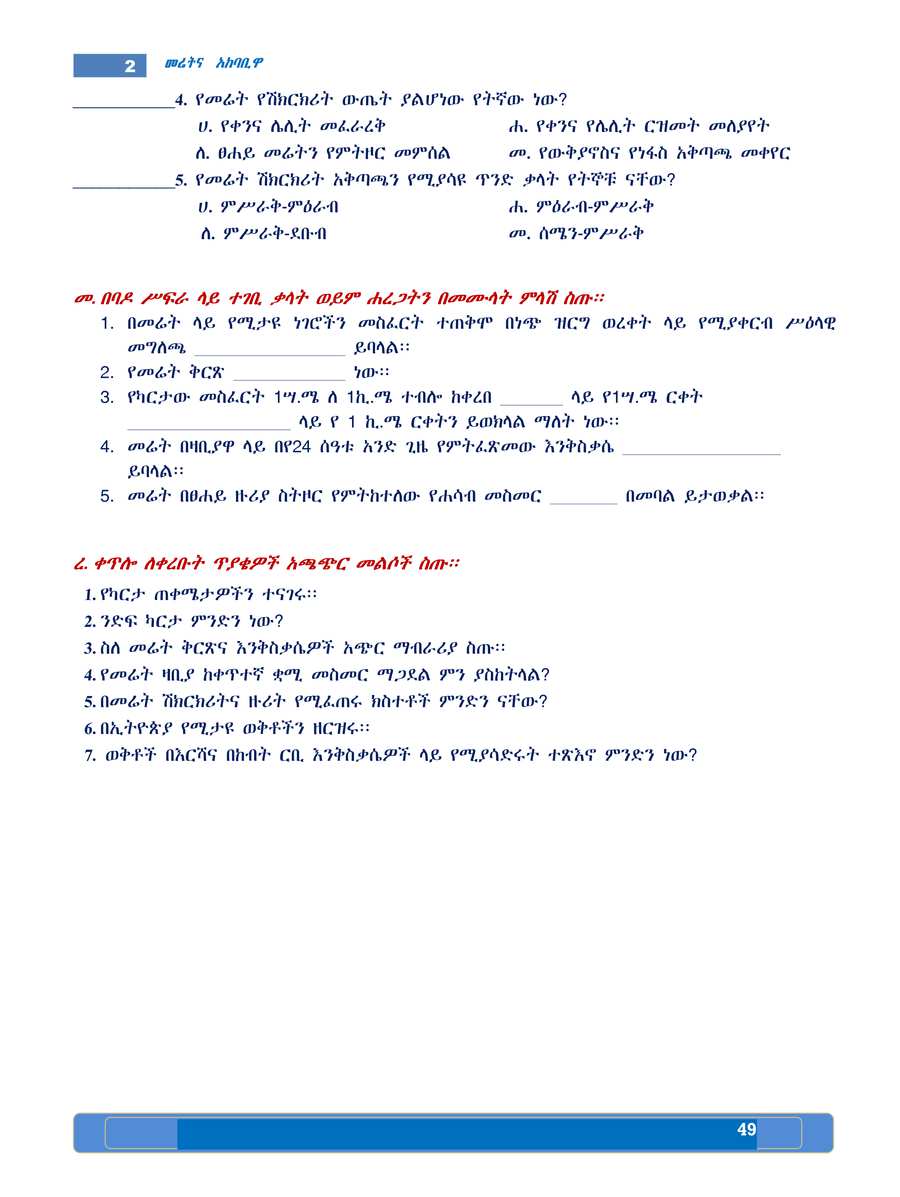 2 መሬትና አከባቢዋ
___________4. የመሬት የሽክርክሪት ውጤት ያልሆነው የትኛው ነው?
ሀ. የቀንና ሌሊት መፈራረቅ ሐ. የቀንና የሌሊት ርዝመት መለያየት
ለ. ፀሐይ መሬትን የምትዞር መምሰል መ. የውቅያኖስና የነፋስ አቅጣጫ መቀየር
___________5. የመሬት ሽክርክሪት አቅጣጫን የሚያሳዩ ጥንድ ቃላት የትኞቹ ናቸው?
ሀ. ምሥራቅ-ምዕራብ ሐ. ምዕራብ-ምሥራቅ
ለ. ምሥራቅ-ደቡብ መ. ሰሜን-ምሥራቅ
መ. በባዶ ሥፍራ ላይ ተገቢ ቃላት ወይም ሐረጋትን በመሙላት ምላሽ ስጡ፡፡
1. በመሬት ላይ የሚታዩ ነገሮችን መስፈርት ተጠቅሞ በነጭ ዝርግ ወረቀት ላይ የሚያቀርብ ሥዕላዊ
መግለጫ ________________ ይባላል፡፡
2. የመሬት ቅርጽ ____________ ነው፡፡
3. የካርታው መስፈርት 1ሣ.ሜ ለ 1ኪ.ሜ ተብሎ ከቀረበ _______ ላይ የ1ሣ.ሜ ርቀት
__________________ ላይ የ 1 ኪ.ሜ ርቀትን ይወክላል ማለት ነው፡፡
4. መሬት በዛቢያዋ ላይ በየ24 ሰዓቱ አንድ ጊዜ የምትፈጽመው እንቅስቃሴ _________________
ይባላል፡፡
5. መሬት በፀሐይ ዙሪያ ስትዞር የምትከተለው የሐሳብ መስመር _______ በመባል ይታወቃል፡፡
ረ. ቀጥሎ ለቀረቡት ጥያቄዎች አጫጭር መልሶች ስጡ፡፡
1. የካርታ ጠቀሜታዎችን ተናገሩ፡፡
2. ንድፍ ካርታ ምንድን ነው?
3. ስለ መሬት ቅርጽና እንቅስቃሴዎች አጭር ማብራሪያ ስጡ፡፡
4. የመሬት ዛቢያ ከቀጥተኛ ቋሚ መስመር ማጋደል ምን ያስከትላል?
5. በመሬት ሽክርክሪትና ዙሪት የሚፈጠሩ ክስተቶች ምንድን ናቸው?
6. በኢትዮጵያ የሚታዩ ወቅቶችን ዘርዝሩ፡፡
7. ወቅቶች በእርሻና በከብት ርቢ እንቅስቃሴዎች ላይ የሚያሳድሩት ተጽእኖ ምንድን ነው?
49